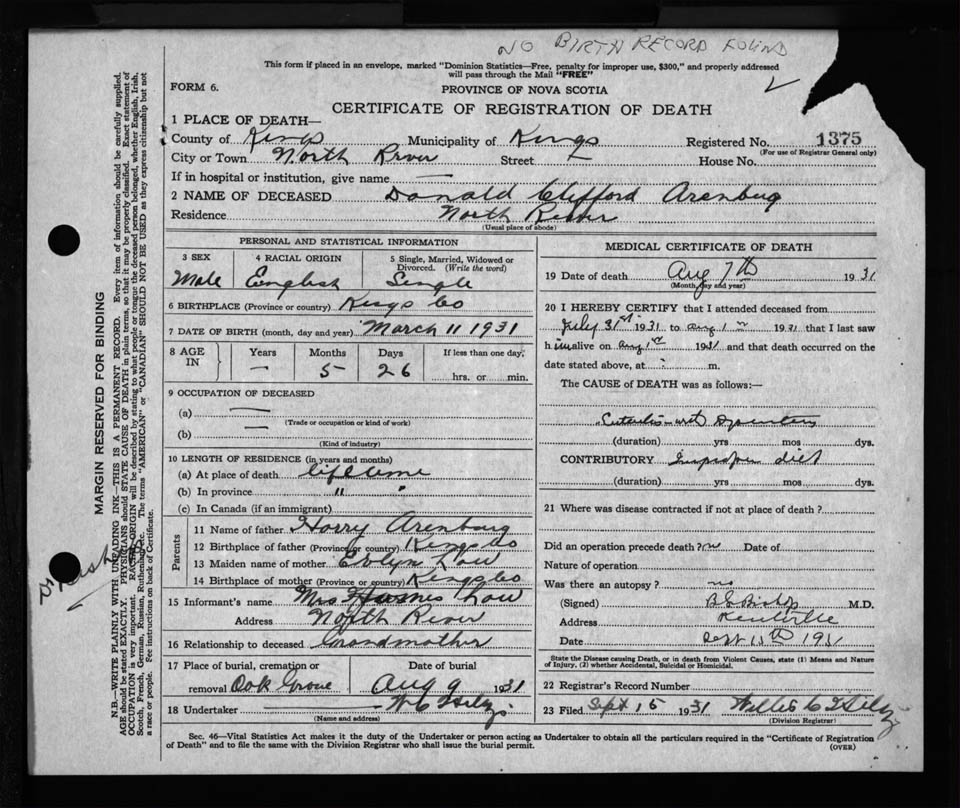 NO BIRTH RECORD FOUND
This form if placed in an envelope, marked "Dominion Statistics—Free, penalty for improper use, $300," and properly addressed
will pass through the Mail "FREE"
FORM 6.
PROVINCE OF NOVA SCOTIA
CERTIFICATE OF REGISTRATION OF DEATH
1 PLACE OF DEATH—
County of Kings Municipality of Kings Registered No. 1375
(For use of Registrar General only)
City or Town North River Street — House No.
If in hospital or institution, give name —
2 NAME OF DECEASED Donald Clifford Arenburg
Residence North River
(Usual place of abode)
PERSONAL AND STATISTICAL INFORMATION
3 SEX Male
4 RACIAL ORIGIN English
5 Single, Married, Widowed or Divorced. (Write the word) Single
6 BIRTHPLACE (Province or country) Kings Co
7 DATE OF BIRTH (month, day and year) March 11 1931
8 AGE IN Years — Months 5 Days 26 If less than one day, hrs. or min.
9 OCCUPATION OF DECEASED
(a) —
(Trade or occupation or kind of work)
(b) —
(Kind of industry)
10 LENGTH OF RESIDENCE (in years and months)
(a) At place of death life time
(b) In province " "
(c) In Canada (if an immigrant)
Parents
11 Name of father Harry Arenburg
12 Birthplace of father (Province or country) Kings Co
13 Maiden name of mother Evelyn
14 Birthplace of mother (Province or country) Kings Co
15 Informant's name Mrs
Address North River
16 Relationship to deceased Grandmother
17 Place of burial, cremation or removal Oak Grove
Date of burial Aug 9 1931
18 Undertaker
(Name and address)
MEDICAL CERTIFICATE OF DEATH
19 Date of death Aug 7th 1931
(Month, day and year)
20 I HEREBY CERTIFY that I attended deceased from
July 31st 1931 to Aug 1 1931 that I last saw
him alive on Aug 1st 1931 and that death occurred on the
date stated above, at m.
The CAUSE of DEATH was as follows:—
(duration) yrs mos dys.
CONTRIBUTORY Improper diet
(duration) yrs mos dys.
21 Where was disease contracted if not at place of death?
Did an operation precede death? no Date of
Nature of operation
Was there an autopsy? no
(Signed) Bishop M.D.
Address Kentville
Date Sept 15th 1931
State the Disease causing Death, or in death from Violent Causes, state (1) Means and Nature
of Injury, (2) whether Accidental, Suicidal or Homicidal.
22 Registrar's Record Number
23 Filed Sept 15 1931
(Division Registrar)
Sec. 46—Vital Statistics Act makes it the duty of the Undertaker or person acting as Undertaker to obtain all the particulars required in the "Certificate of Registration
of Death" and to file the same with the Division Registrar who shall issue the burial permit.
(OVER)
MARGIN RESERVED FOR BINDING
N.B.—WRITE PLAINLY WITH UNFADING INK—THIS IS A PERMANENT RECORD. Every item of information should be carefully supplied.
AGE should be stated EXACTLY. PHYSICIANS should STATE CAUSE OF DEATH in plain terms, so that it may be properly classified. Exact statement of
OCCUPATION is very important. RACIAL ORIGIN will be described by stating to what people or tongue the deceased person belonged, whether English, Irish,
Scotch, French, German, Russian, Ruthenian, etc. The terms "AMERICAN" or "CANADIAN" SHOULD NOT BE USED as they express citizenship but not
a race or people. Fee instructions on back of Certificate.